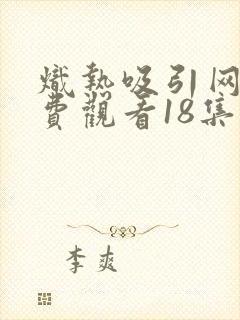 熾熱吸引网
費觀看18集
李爽